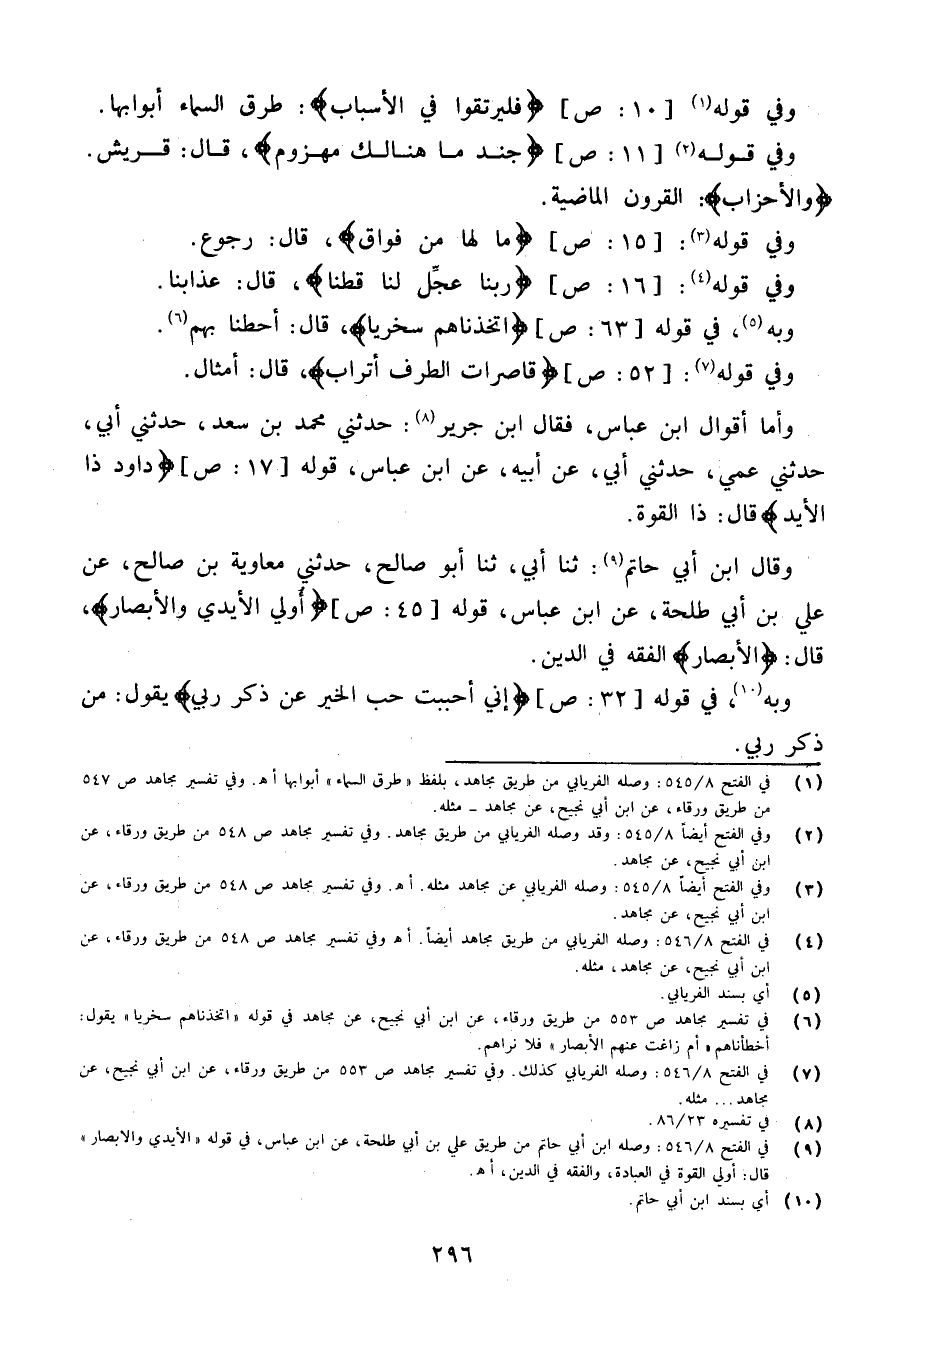 وفي قوله(١) [١٠: ص] ﴿فليرتقوا في الأسباب﴾: طرق السماء أبوابها.
وفي قوله(٢) [١١: ص] ﴿جند ما هنالك مهزوم﴾، قال: قريش.
﴿والأحزاب﴾: القرون الماضية.
وفي قوله(٣): [١٥: ص] ﴿ما لها من فواق﴾، قال: رجوع.
وفي قوله(٤): [١٦: ص] ﴿ربنا عجِّل لنا قطنا﴾، قال: عذابنا.
وبه(٥)، في قوله [٦٣: ص] ﴿اتخذناهم سخريا﴾، قال: أحطنا بهم(٦).
وفي قوله(٧): [٥٢: ص] ﴿قاصرات الطرف أتراب﴾، قال: أمثال.
وأما أقوال ابن عباس، فقال ابن جرير(٨): حدثني محمد بن سعد، حدثني أبي،
حدثني عمي، حدثني أبي، عن أبيه، عن ابن عباس، قوله [١٧: ص] ﴿داود ذا
الأيد﴾ قال: ذا القوة.
وقال ابن أبي حاتم(٩): ثنا أبي، ثنا أبو صالح، حدثني معاوية بن صالح، عن
علي بن أبي طلحة، عن ابن عباس، قوله [٤٥: ص] ﴿أُولي الأيدي والأبصار﴾،
قال: ﴿الأبصار﴾ الفقه في الدين.
وبه(١٠)، في قوله [٣٢: ص] ﴿إني أحببت حب الخير عن ذكر ربي﴾ يقول: من
ذكر ربي.
(١) في الفتح ٥٤٥/٨: وصله الفريابي من طريق مجاهد، بلفظ «طرق السماء» أبوابها أ هـ. وفي تفسير مجاهد ص ٥٤٧
من طريق ورقاء، عن ابن أبي نجيح، عن مجاهد ـ مثله.
(٢) وفي الفتح أيضاً ٥٤٥/٨: وقد وصله الفريابي من طريق مجاهد. وفي تفسير مجاهد ص ٥٤٨ من طريق ورقاء، عن
ابن أبي نجيح، عن مجاهد.
(٣) وفي الفتح أيضاً ٥٤٥/٨: وصله الفريابي عن مجاهد مثله. أ هـ. وفي تفسير مجاهد ص ٥٤٨ من طريق ورقاء، عن
ابن أبي نجيح، عن مجاهد.
(٤) في الفتح ٥٤٦/٨: وصله الفريابي من طريق مجاهد أيضاً. أ هـ وفي تفسير مجاهد ص ٥٤٨ من طريق ورقاء، عن
ابن أبي نجيح، عن مجاهد، مثله.
(٥) أي بسند الفريابي.
(٦) في تفسير مجاهد ص ٥٥٣ من طريق ورقاء، عن ابن أبي نجيح، عن مجاهد في قوله «اتخذناهم سخريا» يقول:
أخطأناهم «أم زاغت عنهم الأبصار» فلا نراهم.
(٧) في الفتح ٥٤٦/٨: وصله الفريابي كذلك. وفي تفسير مجاهد ص ٥٥٣ من طريق ورقاء، عن ابن أبي نجيح، عن
مجاهد... مثله.
(٨) في تفسيره ٨٦/٢٣.
(٩) في الفتح ٥٤٦/٨: وصله ابن أبي حاتم من طريق علي بن أبي طلحة، عن ابن عباس، في قوله «الأيدي والابصار»
قال: أولي القوة في العبادة، والفقه في الدين، أ هـ.
(١٠) أي بسند ابن أبي حاتم.
٢٩٦